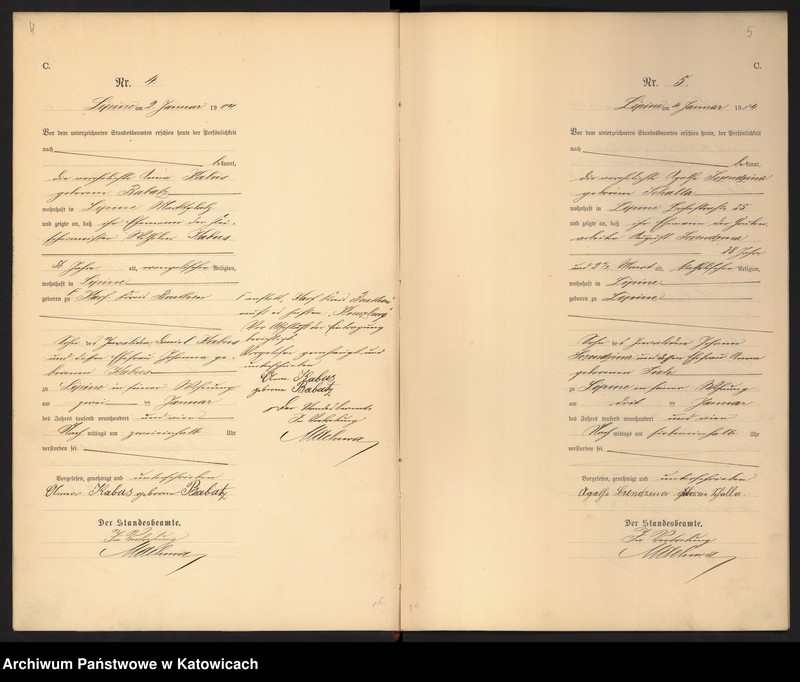 4
C.
Nr. 4.
Lipine am 2. Januar 1904
Vor dem unterzeichneten Standesbeamten erschien heute, der Persönlichkeit
nach
bekannt,
die verehelichte Anna Kabas
geborene Babatz
wohnhaft in Lipine Marktplatz
und zeigte an, daß ihr Ehemann der
Wilhelm Kabas
Jahre alt, evangelischer Religion,
wohnhaft in Lipine
geboren zu
Sohn des Invaliden Daniel Kabas
und dessen Ehefrau Johanna ge-
borenen Kabas
zu Lipine in seiner Wohnung
am zwei ten Januar
des Jahres tausend neunhundert und vier
Nach mittags um zweieinhalb Uhr
verstorben sei
Vorgelesen, genehmigt und unterschrieben
Anna Kabas geborene Babatz
Der Standesbeamte.
In Vertretung
anstatt
muß es heißen
Vor Abschluß der Eintragung
berichtigt.
Vorgelesen genehmigt und
unterschrieben
Anna Kabas
geborene Babatz
Der Standesbeamte
In Vertretung
5
C.
Nr. 5.
Lipine am 4. Januar 1904
Vor dem unterzeichneten Standesbeamten erschien heute, der Persönlichkeit
nach
bekannt,
die verehelichte Agathe
geborene Scholla
wohnhaft in Lipine
und zeigte an, daß ihr Ehemann der
arbeiter August
38 Jahre
und 2½ Monat alt, katholischer Religion,
wohnhaft in Lipine
geboren zu Lipine
Sohn des Invaliden Johann
und dessen Ehefrau Anna
geborenen
zu Lipine in seiner Wohnung
am drei ten Januar
des Jahres tausend neunhundert und vier
Nach mittags um siebeneinhalb Uhr
verstorben sei
Vorgelesen, genehmigt und unterschrieben
Agathe geborene Scholla
Der Standesbeamte.
In Vertretung
Archiwum Państwowe w Katowicach